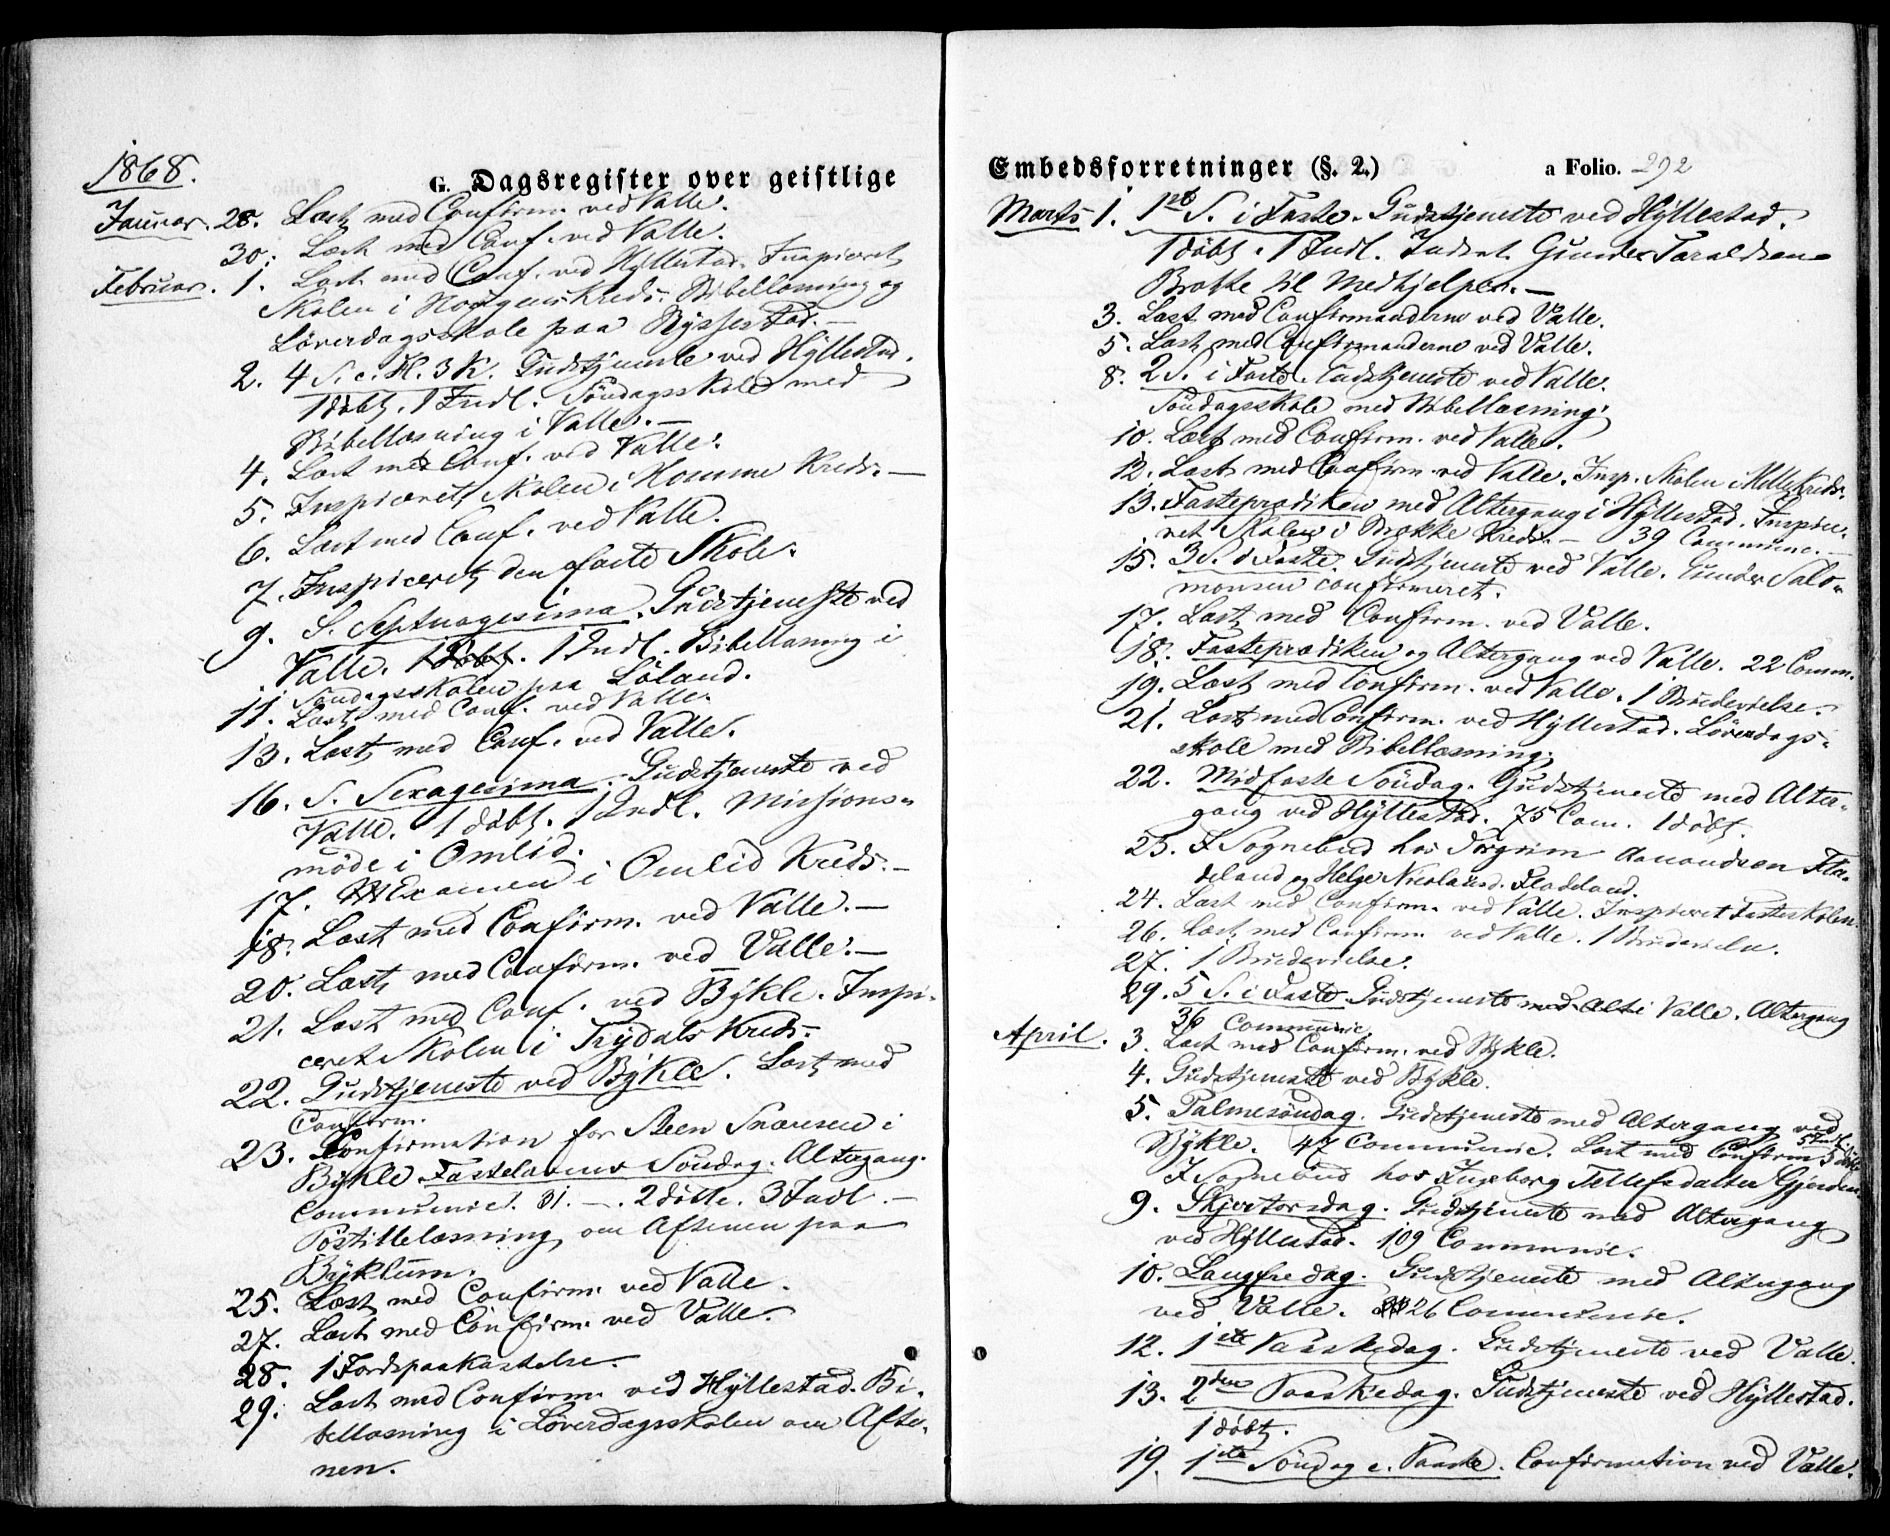 1868.
G. Dagsregister over geistlige
Januar. 28. Læst med Confirm. ved Valle.
30. Læst med Conf. ved Valle.
Februar. 1. Læst med Conf. ved Hyllestad. Inspiceret
Skolen i Kreds. Bibellæsning og
Löverdagsskole paa Rysstad.—
2. 4 S. e. H. 3 K. Gudstjeneste ved Hyllestad.
1 döbt. 1 Indl. Söndagsskole med
Bibellæsning i Valle.—
4. Læst med Conf. ved Valle.
5. Inspiceret Skolen i Homme Kreds.—
6. Læst med Conf. ved Valle.
7. Inspiceret den faste Skole.
9. S. Septuagesima. Gudstjeneste ved
Valle. 1 döbt. 1 Indl. Bibellæsning i
Söndagsskolen paa Löland.
11. Læst med Conf. ved Valle.
13. Læst med Conf. ved Valle.
16. S. Sexagesima. Gudstjeneste ved
Valle. 1 döbt. 1 Indl. Missions-
möde i Omlid.
17. Examen i Omlid Kreds.—
18. Læst med Confirm. ved Valle.—
20. Læst med Confirm. ved Valle.—
21. Læst med Conf. ved Bykle. Inspi-
ceret Skolen i Trydals Kreds.
22. Gudstjeneste ved Bykle. Læst med
Confirm.
23. Confirmation for Steen Snaresen i
Bykle. Fastelavens Söndag. Altergang.
Communic. 31.—. 2 döbte. 3 Indl.—
Postillelæsning om Aftenen paa
Byklum.
25. Læst med Confirm. ved Valle.
27. Læst med Confirm. ved Valle.
28. 1 Jordspaakastelse.
29. Læst med Confirm. ved Hyllestad. Bi-
bellæsning i Löverdagsskolen om Afte-
nen.
Embedsforretninger (§. 2.)
a Folio. 292
Marts 1. 1ste S. i Faste. Gudstjeneste ved Hyllestad.
1 döbt. 1 Indl. Indsat Gunder Taraldsen
Brokke til Medhjelper.—
3. Læst med Confirmanderne ved Valle.
5. Læst med Confirmanderne ved Valle.
8. 2 S. i Faste. Gudstjeneste ved Valle.
Söndagsskole med Bibellæsning.
10. Læst med Confirm. ved Valle.
12. Læst med Confirm. ved Valle. Insp. Skolen i Kreds.
13. Fasteprædiken med Altergang i Hyllestad. Inspice-
ret Skolen i Brokke Kreds.— 39 Commune.—
15. 3 S. i Faste. Gudstjeneste ved Valle. Gunder Salo-
monsen confirmeret.
17. Læst med Confirm. ved Valle.
18. Fasteprædiken og Altergang ved Valle. 22 Comm.
19. Læst med Confirm. ved Valle. 1 Brudevielse.
21. Læst med Confirm. ved Hyllestad. Löverdags-
skole med Bibellæsning.
22. Midfaste Söndag. Gudstjeneste med Alter-
gang ved Hyllestad. 75 Com. 1 döbt.
23. I Sognebud hos Torgrim Aamundsen Fla-
deland og Helge Nicolaisd. Fladeland.
24. Læst med Confirm. ved Valle. Inspiceret Fasteskolen
26. Læst med Confirm. ved Valle. 1 Brudevielse.
27. 1 Brudevielse.
29. 5 S. i Faste. Gudstjeneste med Alt i Valle. Altergang
36 Communic.
April. 3. Læst med Confirm. ved Bykle.
4. Gudstjeneste ved Bykle.
5. Palmesöndag. Gudstjeneste med Altergang ved
Bykle. 47 Communic. Læst med Confirm. 5 Indl. 5 döbte
I Sognebud hos Ingeborg Tellefsdatter Gjerden.
9. Skjertorsdag. Gudstjeneste med Altergang
ved Hyllestad. 109 Communic.
10. Langfredag. Gudstjeneste med Altergang
ved Valle. 26 Communic.
12. 1ste Paaskedag. Gudstjeneste ved Valle.
13. 2den Paaskedag. Gudstjeneste ved Hyllestad.
1 döbt.
19. 1ste Söndag e. Paaske. Confirmation ved Valle.